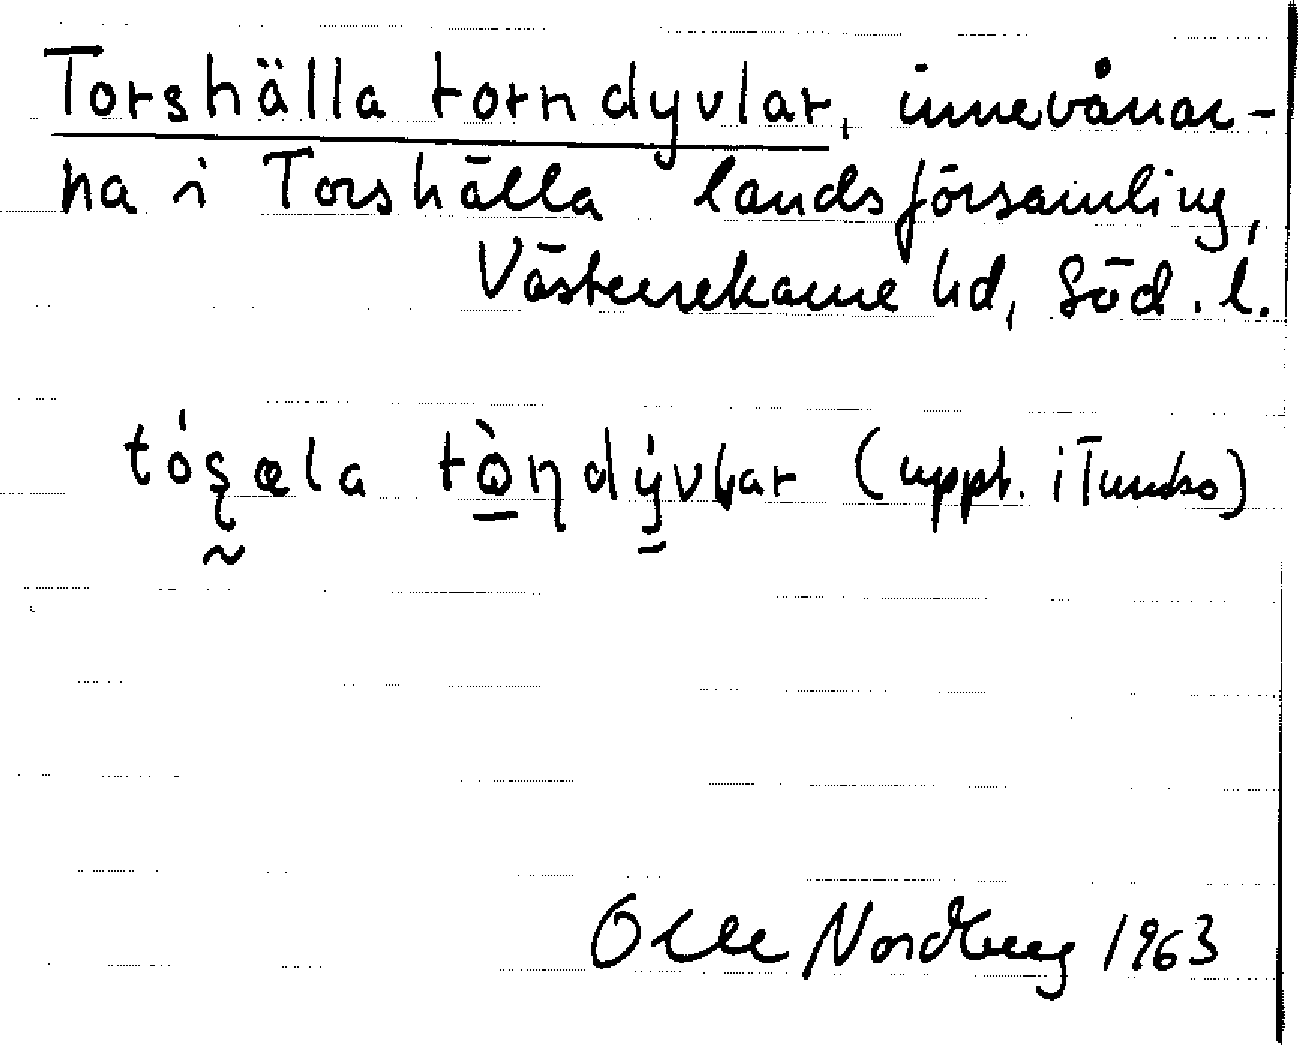 Torshälla torndyvlar, innevånar-
na i Torshälla landsförsamling,
Västerrekarne hd, Söd. l.
tóʂæla tɔ̀ɳdývlar (uppt. i Tumbo)
Olle Nordberg 1963